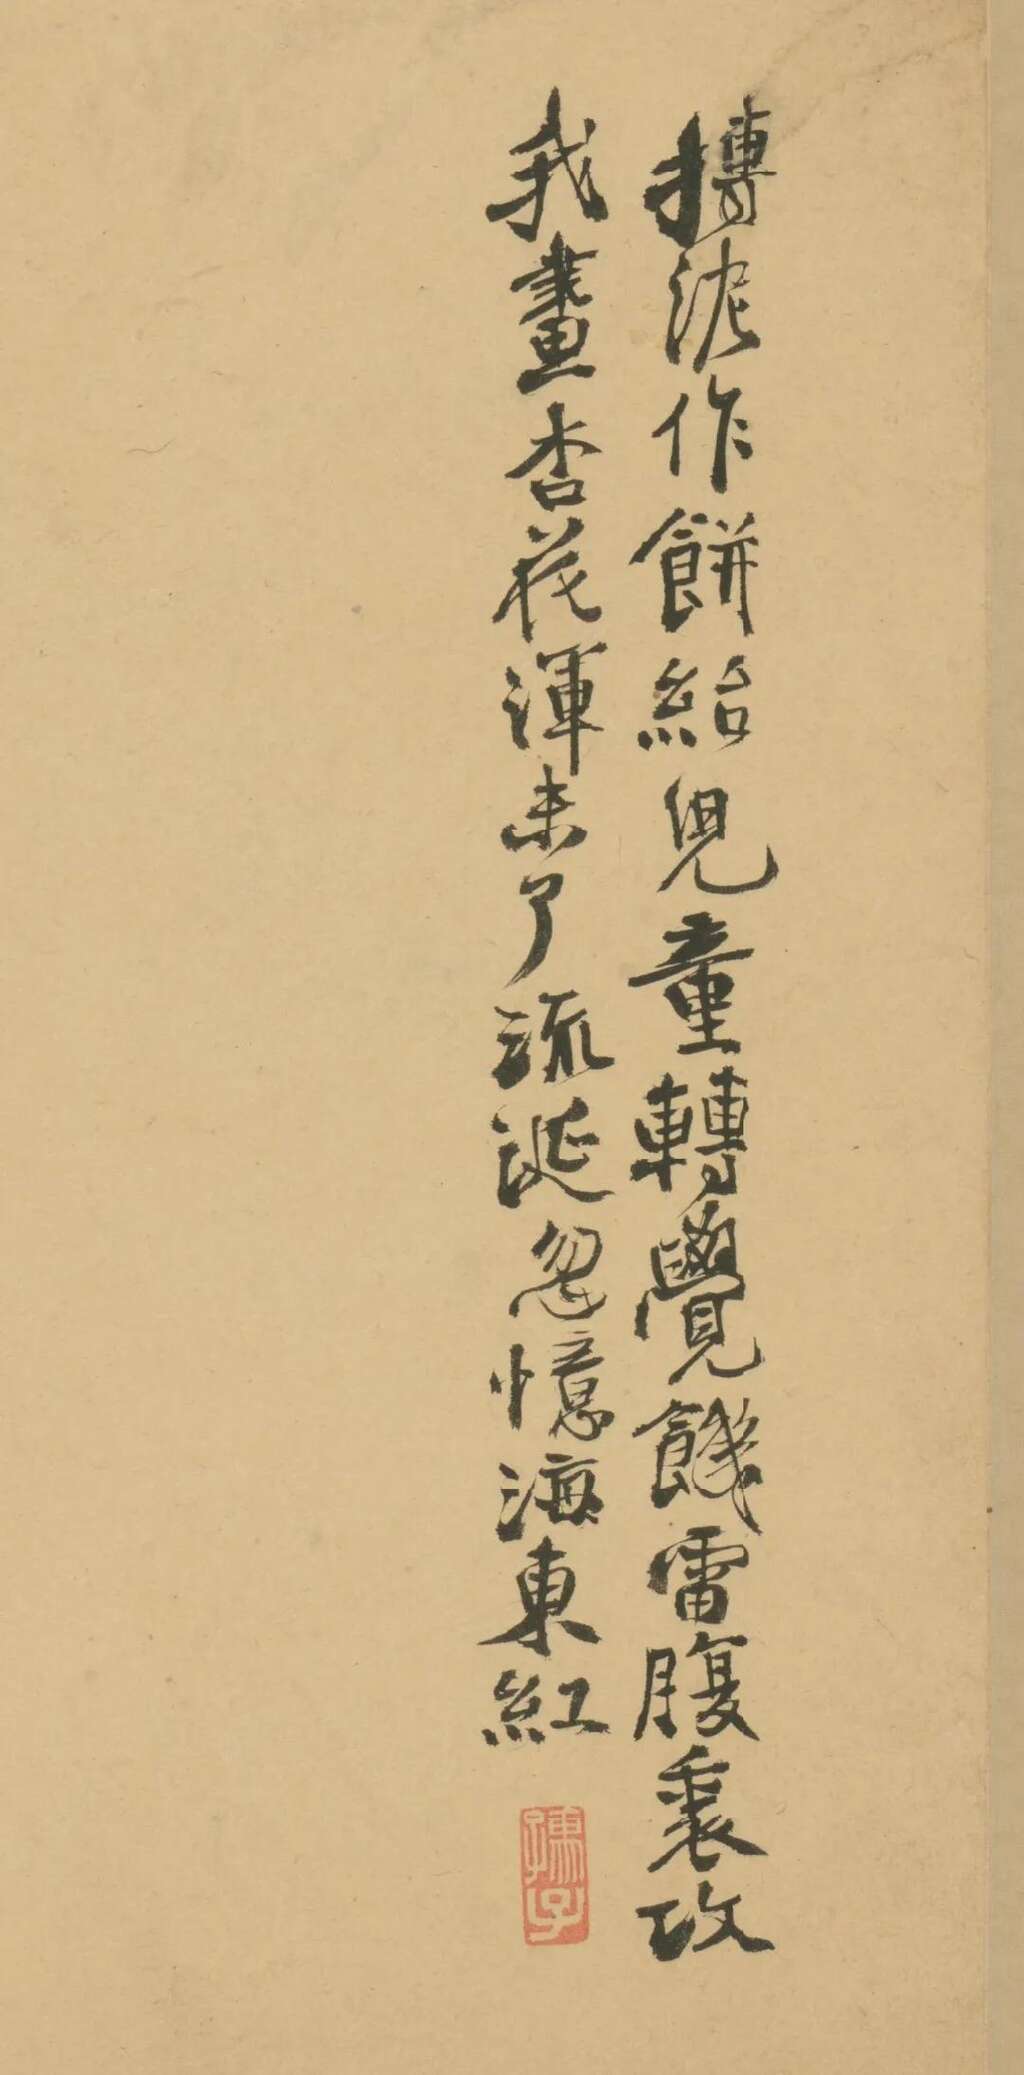 摶泥作餅紿兒童轉覺饑雷腹裏攻
我畫杏花渾未了流涎忽憶海東紅